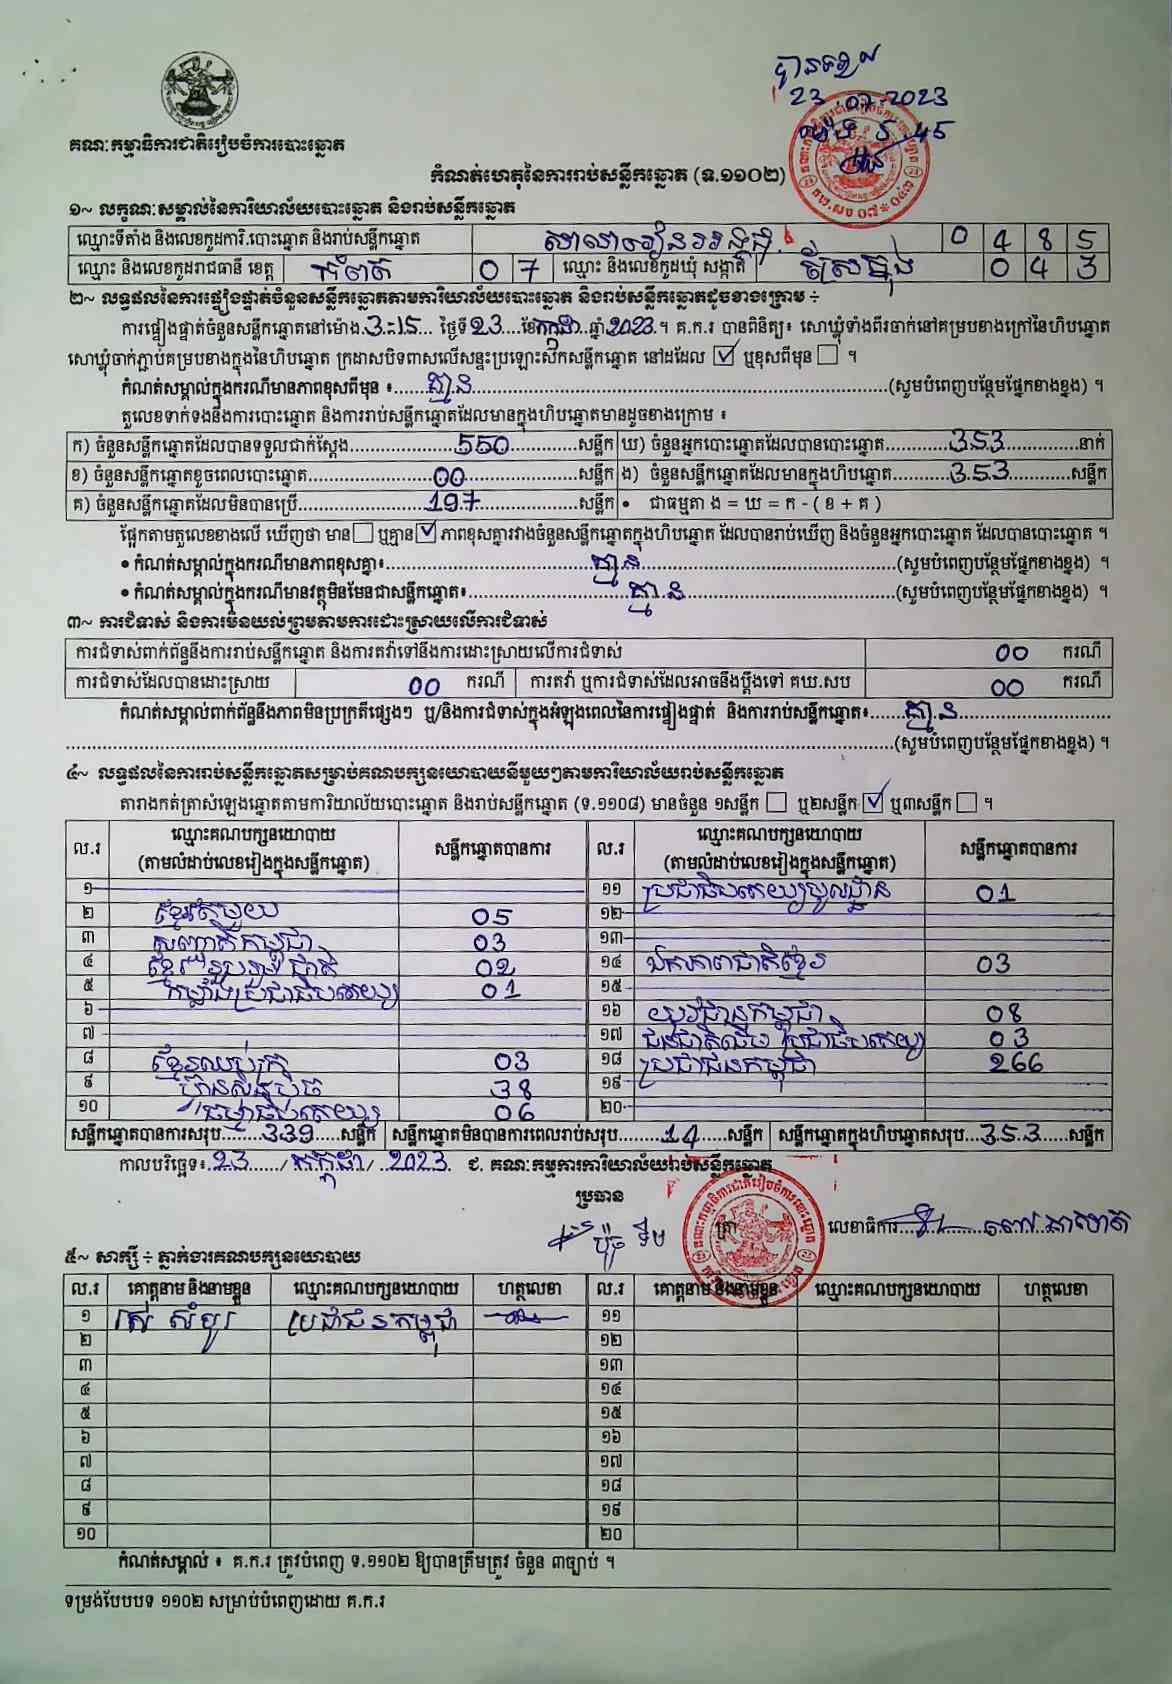 បានឃើញ
23.07.2023
ម៉ោង 5.45
គណៈកម្មាធិការជាតិរៀបចំការបោះឆ្នោត
កំណត់ហេតុនៃការរាប់សន្លឹកឆ្នោត (ទ.១១០២)
គឃ.សប ០៧*០៤៣
១~ លក្ខណៈសម្គាល់នៃការិយាល័យបោះឆ្នោត និងរាប់សន្លឹកឆ្នោត
ឈ្មោះទីតាំង និងលេខកូដការិ.បោះឆ្នោត និងរាប់សន្លឹកឆ្នោត សាលារៀន 0 4 8 5
ឈ្មោះ និងលេខកូដរាជធានី ខេត្ត កំពត 0 7 ឈ្មោះ និងលេខកូដឃុំ សង្កាត់ ស្រែធ្នង់ 0 4 3
២~ លទ្ធផលនៃការផ្ទៀងផ្ទាត់ចំនួនសន្លឹកឆ្នោតតាមការិយាល័យបោះឆ្នោត និងរាប់សន្លឹកឆ្នោតដូចខាងក្រោម ÷
ការផ្ទៀងផ្ទាត់ចំនួនសន្លឹកឆ្នោតនៅម៉ោង.3-15... ថ្ងៃទី23....ខែកក្កដា..ឆ្នាំ2023.។ គ.ក.រ បានពិនិត្យ៖ សោឃ្លុំទាំងពីរចាក់នៅគម្របខាងក្រៅនៃហិបឆ្នោត
សោឃ្លុំចាក់ភ្ជាប់គម្របខាងក្នុងនៃហិបឆ្នោត ក្រដាសបិទពាសលើសន្ទះប្រឡោះស៊កសន្លឹកឆ្នោត នៅដដែល ☑ ឬខុសពីមុន ☐ ។
កំណត់សម្គាល់ក្នុងករណីមានភាពខុសពីមុន ៖......គ្មាន......(សូមបំពេញបន្ថែមផ្នែកខាងខ្នង) ។
តួលេខទាក់ទងនឹងការបោះឆ្នោត និងការរាប់សន្លឹកឆ្នោតដែលមានក្នុងហិបឆ្នោតមានដូចខាងក្រោម ៖
ក) ចំនួនសន្លឹកឆ្នោតដែលបានទទួលជាក់ស្តែង......550......សន្លឹក ឃ) ចំនួនអ្នកបោះឆ្នោតដែលបានបោះឆ្នោត......353......នាក់
ខ) ចំនួនសន្លឹកឆ្នោតខូចពេលបោះឆ្នោត......00......សន្លឹក ង) ចំនួនសន្លឹកឆ្នោតដែលមានក្នុងហិបឆ្នោត......353......សន្លឹក
គ) ចំនួនសន្លឹកឆ្នោតដែលមិនបានប្រើ......197......សន្លឹក • ជាធម្មតា ង = ឃ = ក - ( ខ + គ )
ផ្អែកតាមតួលេខខាងលើ ឃើញថា មាន ☐ ឬគ្មាន ☑ ភាពខុសគ្នារវាងចំនួនសន្លឹកឆ្នោតក្នុងហិបឆ្នោត ដែលបានរាប់ឃើញ និងចំនួនអ្នកបោះឆ្នោត ដែលបានបោះឆ្នោត ។
• កំណត់សម្គាល់ក្នុងករណីមានភាពខុសគ្នា៖......គ្មាន......(សូមបំពេញបន្ថែមផ្នែកខាងខ្នង) ។
• កំណត់សម្គាល់ក្នុងករណីមានវត្ថុមិនមែនជាសន្លឹកឆ្នោត៖......គ្មាន......(សូមបំពេញបន្ថែមផ្នែកខាងខ្នង) ។
៣~ ការជំទាស់ និងការមិនយល់ព្រមតាមការដោះស្រាយលើការជំទាស់
ការជំទាស់ពាក់ព័ន្ធនឹងការរាប់សន្លឹកឆ្នោត និងការតវ៉ាទៅនឹងការដោះស្រាយលើការជំទាស់ 00 ករណី
ការជំទាស់ដែលបានដោះស្រាយ 00 ករណី ការតវ៉ា ឬការជំទាស់ដែលអាចនឹងប្តឹងទៅ គឃ.សប 00 ករណី
កំណត់សម្គាល់ពាក់ព័ន្ធនឹងភាពមិនប្រក្រតីផ្សេងៗ ឬ/និងការជំទាស់ក្នុងអំឡុងពេលនៃការផ្ទៀងផ្ទាត់ និងការរាប់សន្លឹកឆ្នោត៖......គ្មាន......
......(សូមបំពេញបន្ថែមផ្នែកខាងខ្នង) ។
៤~ លទ្ធផលនៃការរាប់សន្លឹកឆ្នោតសម្រាប់គណបក្សនយោបាយនីមួយៗតាមការិយាល័យរាប់សន្លឹកឆ្នោត
តារាងកត់ត្រាសំឡេងឆ្នោតតាមការិយាល័យបោះឆ្នោត និងរាប់សន្លឹកឆ្នោត (ទ.១១០៨) មានចំនួន ១សន្លឹក ☐ ឬ២សន្លឹក ☑ ឬ៣សន្លឹក ☐ ។
ល.រ ឈ្មោះគណបក្សនយោបាយ (តាមលំដាប់លេខរៀងក្នុងសន្លឹកឆ្នោត) សន្លឹកឆ្នោតបានការ ល.រ ឈ្មោះគណបក្សនយោបាយ (តាមលំដាប់លេខរៀងក្នុងសន្លឹកឆ្នោត) សន្លឹកឆ្នោតបានការ
១ ១១ ប្រជាធិបតេយ្យមូលដ្ឋាន 01
២ ខ្មែរតែមួយ 05 ១២
៣ សញ្ជាតិកម្ពុជា 03 ១៣
៤ ខ្មែររួបរួមជាតិ 02 ១៤ ឯកភាពជាតិខ្មែរ 03
៥ កម្លាំងប្រជាធិបតេយ្យ 01 ១៥
៦ ១៦ យុវជនកម្ពុជា 08
៧ ១៧ ជនជាតិដើមប្រជាធិបតេយ្យ 03
៨ ខ្មែរឈប់ក្រ 03 ១៨ ប្រជាជនកម្ពុជា 266
៩ ហ៊្វុនស៊ិនប៉ិច 38 ១៩
១០ ធម្មាធិបតេយ្យ 06 ២០
សន្លឹកឆ្នោតបានការសរុប......339......សន្លឹក សន្លឹកឆ្នោតមិនបានការពេលរាប់សរុប......14......សន្លឹក សន្លឹកឆ្នោតក្នុងហិបឆ្នោតសរុប...353......សន្លឹក
កាលបរិច្ឆេទ៖.23....../កក្កដា/..2023. ជ. គណៈកម្មការការិយាល័យរាប់សន្លឹកឆ្នោត
ប្រធាន
ត្រា លេខាធិការ
៥~ សាក្សី ÷ ភ្នាក់ងារគណបក្សនយោបាយ
ល.រ គោត្តនាម និងនាមខ្លួន ឈ្មោះគណបក្សនយោបាយ ហត្ថលេខា ល.រ គោត្តនាម និងនាមខ្លួន ឈ្មោះគណបក្សនយោបាយ ហត្ថលេខា
១ រស់ សំបូរ ប្រជាជនកម្ពុជា ១១
២ ១២
៣ ១៣
៤ ១៤
៥ ១៥
៦ ១៦
៧ ១៧
៨ ១៨
៩ ១៩
១០ ២០
កំណត់សម្គាល់ ៖ គ.ក.រ ត្រូវបំពេញ ទ.១១០២ ឱ្យបានត្រឹមត្រូវ ចំនួន ៣ច្បាប់ ។
ទម្រង់បែបបទ ១១០២ សម្រាប់បំពេញដោយ គ.ក.រ